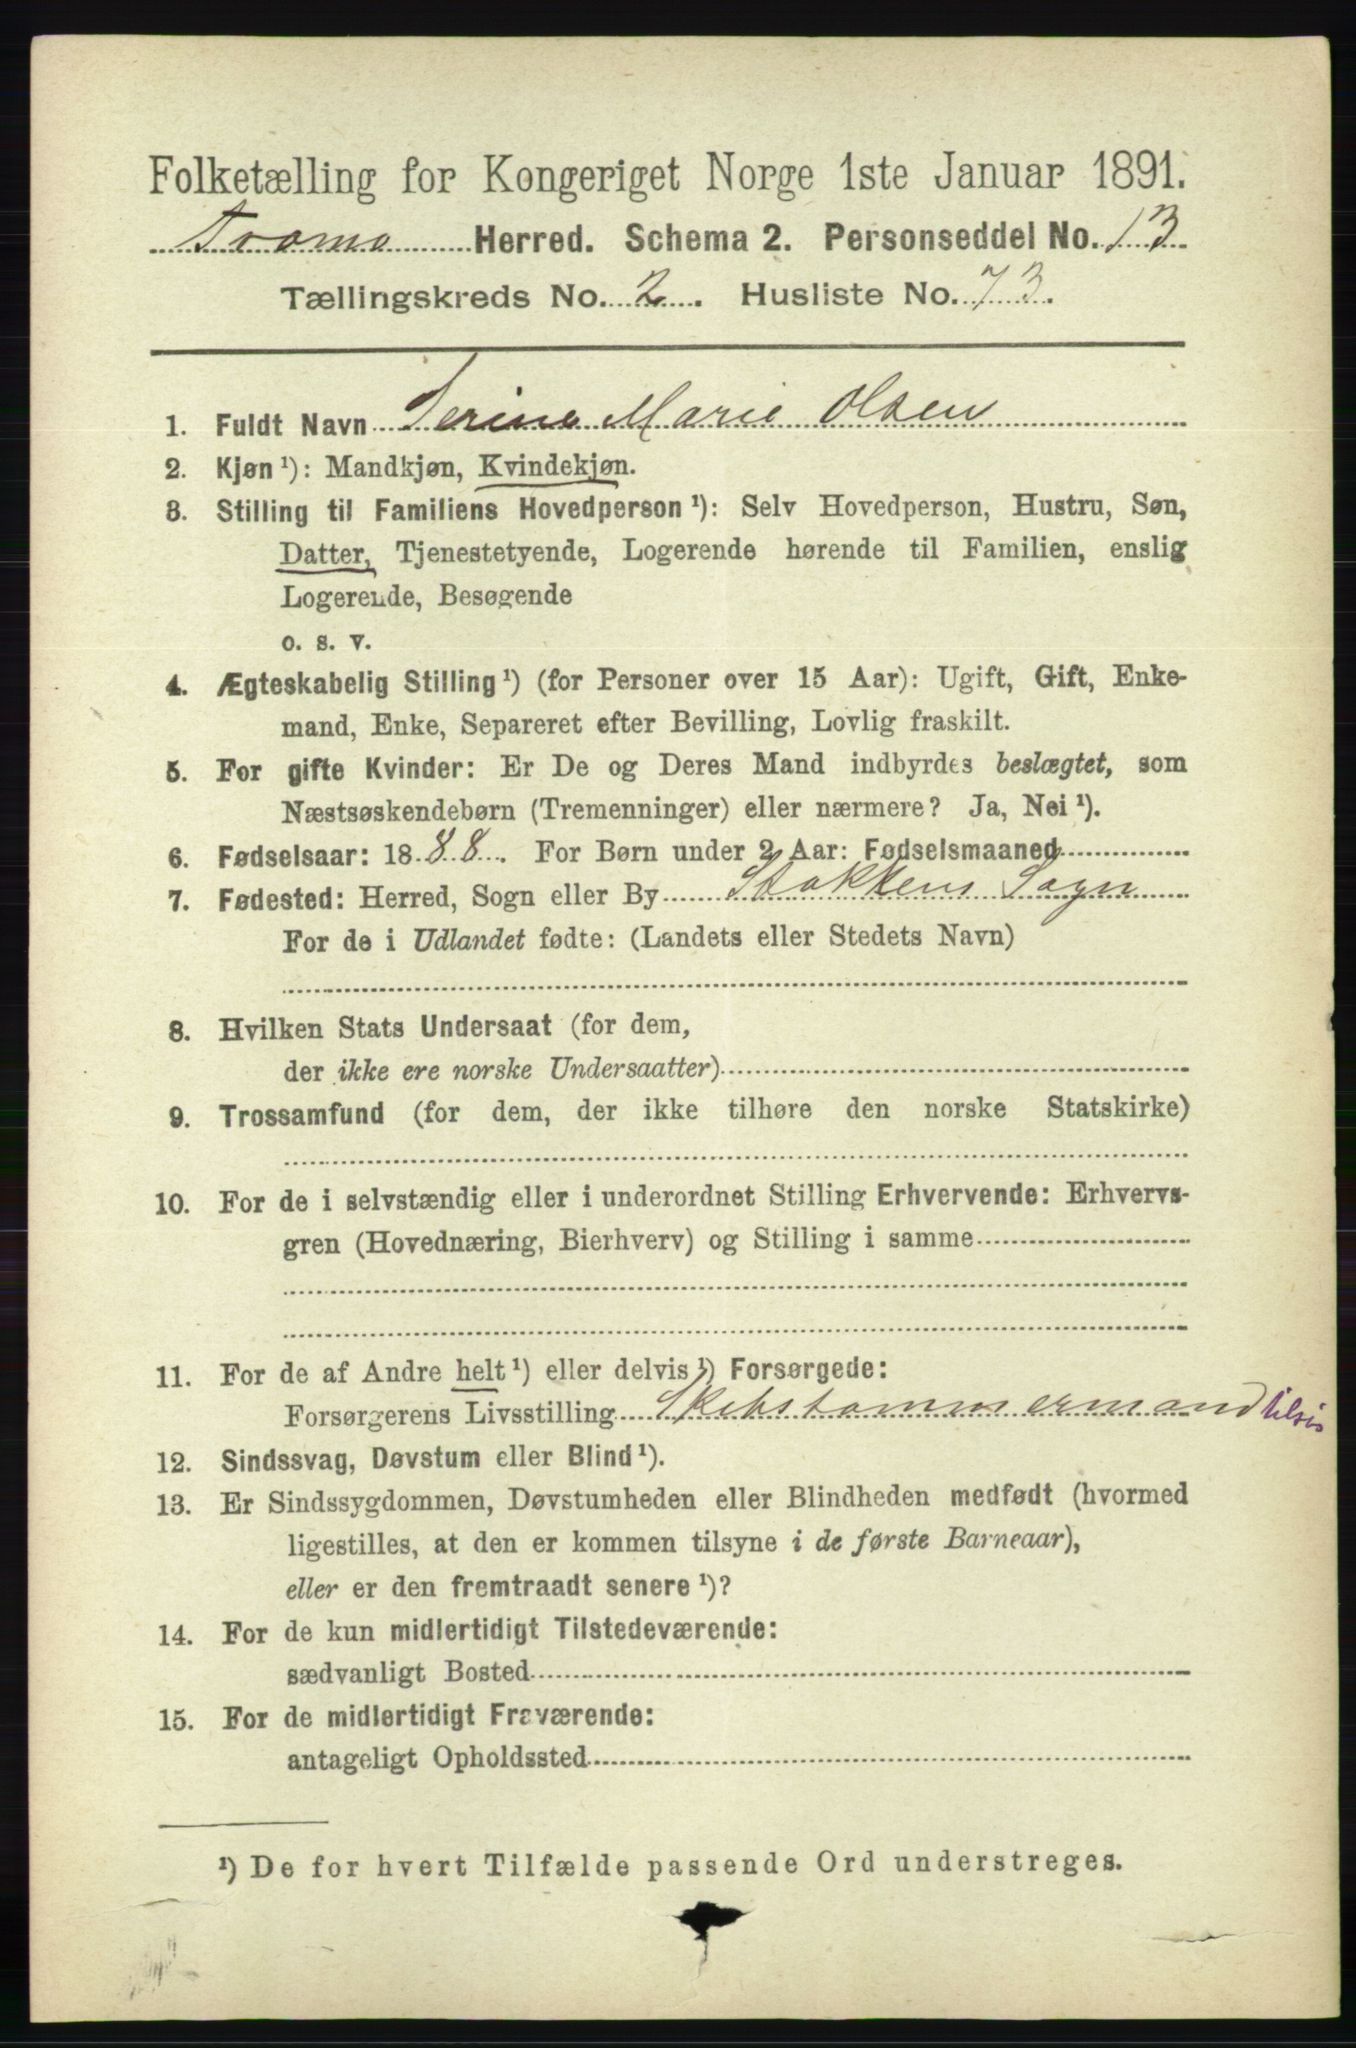 Folketælling for Kongeriget Norge 1ste Januar 1891.
Tromø Herred. Schema 2. Personseddel No. 13
Tællingskreds No. 2. Husliste No. 73.
1. Fuldt Navn Serine Marie Olsen
2. Kjøn ¹): Mandkjøn, Kvindekjøn.
3. Stilling til Familiens Hovedperson ¹): Selv Hovedperson, Hustru, Søn,
Datter, Tjenestetyende, Logerende hørende til Familien, enslig
Logerende, Besøgende
o. s. v.
4. Ægteskabelig Stilling ¹) (for Personer over 15 Aar): Ugift, Gift, Enke-
mand, Enke, Separeret efter Bevilling, Lovlig fraskilt.
5. For gifte Kvinder: Er De og Deres Mand indbyrdes beslægtet, som
Næstsøskendebørn (Tremenninger) eller nærmere? Ja, Nei ¹).
6. Fødselsaar: 1888. For Børn under 2 Aar: Fødselsmaaned
7. Fødested: Herred, Sogn eller By Stokkens Sogn
For de i Udlandet fødte: (Landets eller Stedets Navn)
8. Hvilken Stats Undersaat (for dem,
der ikke ere norske Undersaatter)
9. Trossamfund (for dem, der ikke tilhøre den norske Statskirke)
10. For de i selvstændig eller i underordnet Stilling Erhvervende: Erhvervs-
gren (Hovednæring, Bierhverv) og Stilling i samme
11. For de af Andre helt ¹) eller delvis ¹) Forsørgede:
Forsørgerens Livsstilling Skibstømmermand
12. Sindssvag, Døvstum eller Blind ¹).
13. Er Sindssygdommen, Døvstumheden eller Blindheden medfødt (hvormed
ligestilles, at den er kommen tilsyne i de første Barneaar),
eller er den fremtraadt senere ¹)?
14. For de kun midlertidigt Tilstedeværende:
sædvanligt Bosted
15. For de midlertidigt Fraværende:
antageligt Opholdssted
¹) De for hvert Tilfælde passende Ord understreges.